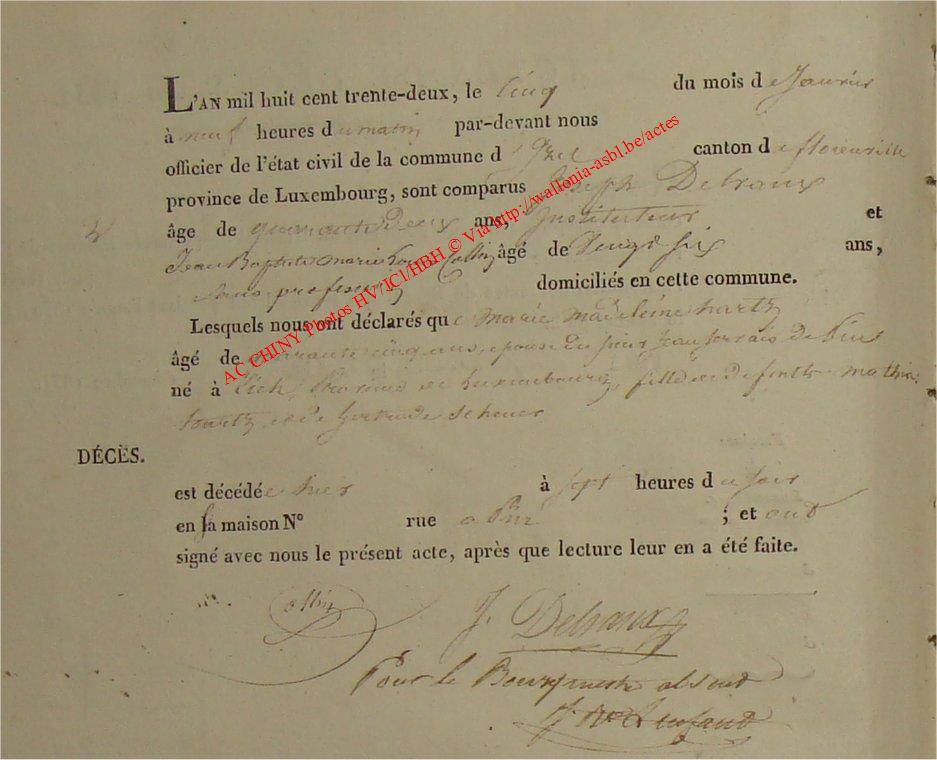 L'AN mil huit cent trente-deux, le Cinq du mois de Janvier
à neuf heures du matin par-devant nous
officier de l'état civil de la commune d canton de florenville
province de Luxembourg, sont comparus Joseph Delraux
âge de quarante deux ans, Instituteur et
2
Jean Baptiste marie Louis Collin âgé de vingt six ans,
sans profession domiciliés en cette commune.
Lesquels nous ont déclarés que marie madeleine
âgé de quarante cinq ans, épouse en
né à province de Luxembourg, fille de défunts mathias
et de Gertrude
DÉCÈS.
est décédée hier à sept heures du soir
en sa maison N° rue a ; et ont
signé avec nous le présent acte, après que lecture leur en a été faite.
Collin
J. Delraux
Pour le Bourgmestre absent
AC CHINY Photos HV/JCl/HBH © Via http://wallonia-asbl.be/actes